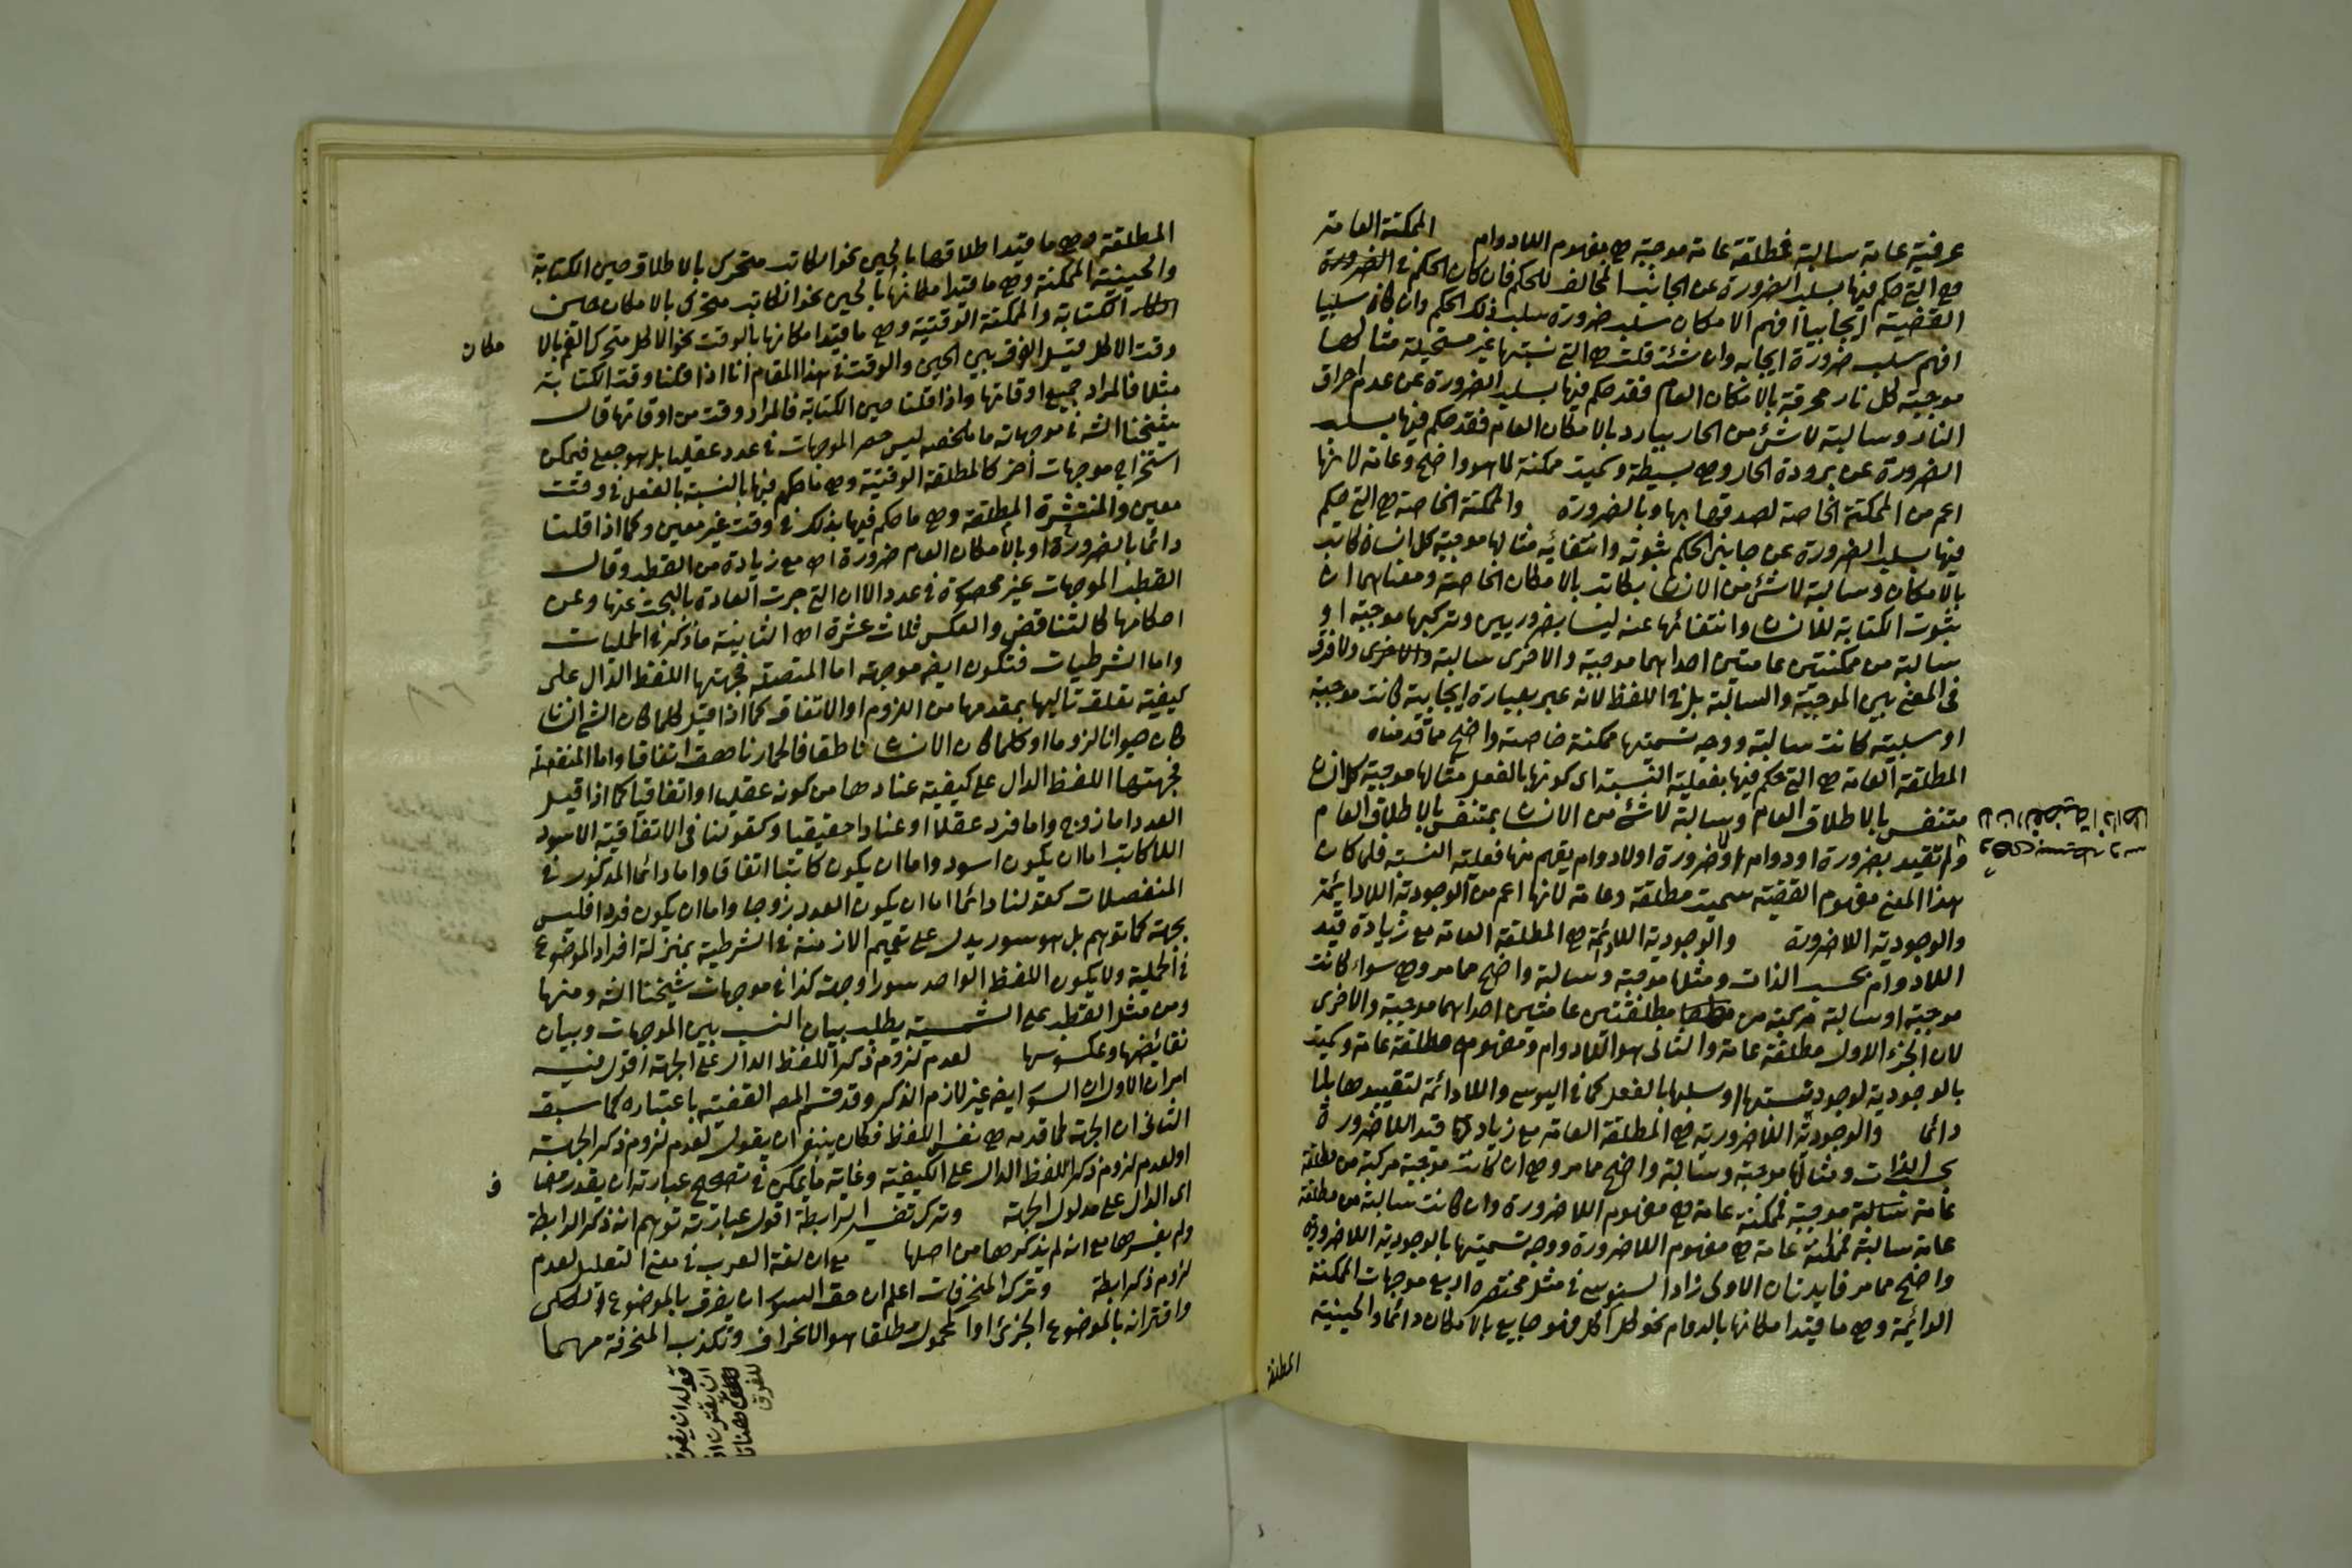 عرفية عامة سالبة فمطلقة عامة موجبة هي مفهوم اللادوام الممكنة العامة
هي التي حكم فيها بسلب الضرورة عن الجانب المخالف للحكم فان كان الحكم في الضرورة
القضية ايجابيا افهم الامكان سلب ضرورة سلب ذلك الحكم وان كان سلبيا
افهم سلب ضرورة ايجابه وان شئت قلت هي التي نسبتها غير مستحيلة مثالها
موجبة كل نار محرقة بالامكان العام فقد حكم فيها بسلب الضرورة عن عدم احراق
النار وسالبة لا شئ من الحار ببارد بالامكان العام فقد حكم فيها بسلب
الضرورة عن برودة الحار وهي بسيطة وسميت ممكنة لما هو واضح وعامة لانها
اعم من الممكنة الخاصة لصدقها بها وبالضرورة والممكنة الخاصة هي التي حكم
فيها بسلب الضرورة عن جانبي الحكم ثبوته وانتفائه مثالها موجبة كل انسان كاتب
بالامكان وسالبة لا شئ من الانسان بكاتب بالامكان الخاصة ومعناهما ان
ثبوت الكتابة للانسان وانتفائها عنه ليسا بضروريين وتركيبها موجبة او
سالبة من ممكنتين عامتين احداهما موجبة والاخرى سالبة والاخرى ولا فرق
في المعنى بين الموجبة والسالبة بل في اللفظ لانه عبر بعبارة ايجابية كانت موجبة
او سلبية كانت سالبة ووجه تسمتها ممكنة خاصة واضح مما قدمناه
المطلقة العامة هي التي حكم فيها بفعلية النسبة اي كونها بالفعل مثالها موجبة كل انسان
متنفس بالاطلاق العام وسالبة لا شئ من الانسان بمتنفس بالاطلاق العام
ولم تقيد بضرورة او دوام او لا ضرورة او لا دوام يفهم منها فعلية النسبة فلما كان
هذا المعنى مفهوم القضية سميت مطلقة وعامة لانها اعم من الوجودية اللادائمة
والوجودية اللاضرورة والوجودية اللادائمة هي المطلقة العامة مع زيادة قيد
اللادوام بحسب الذات ومثلها موجبة وسالبة واضح مما مر وهي سواء كانت
موجبة او سالبة مركبة من مطلقتين عامتين احداهما موجبة والاخرى
لان الجزء الاول مطلقة عامة والثاني هو اللادوام ومفهومه مطلقة عامة وسميت
بالوجودية لوجود نسبتها او سلبها بالفعل كما في اليوسي واللادائمة لتقييدها بلا
دائما والوجودية اللاضرورية هي المطلقة العامة مع زيادة قيد اللاضرورة
بحسب الذات ومثالها موجبة وسالبة واضح مما مر وهي ان كانت موجبة مركبة من مطلقة
عامة سالبة موجبة فممكنة عامة هي مفهوم اللاضرورة وان كانت سالبة من مطلقة
عامة سالبة فممكنة عامة هي مفهوم اللاضرورة ووجه تسميتها بالوجودية اللاضرورية
واضح مما مر فايدتان الاولى زاد السنوسي في مثل مختصره اربع موجهات الممكنة
الدائمة وهي ما قيد امكانها بالدوام نحو كل اكل فهو جايع بالامكان دائما والحينية
المطلقة
المطلقة وهي ما قيد اطلاقها بالحين نحو الكاتب متحرك بالاطلاق حين الكتابة
والحينية الممكنة وهي ما قيد امكانها بالحين نحو الكاتب متحرك بالامكان حين
الكتابة والممكنة الوقتية وهي ما قيد امكانها بالوقت نحو الاكل متحرك الفم بالا
مكان
وقت الاكل قيل الفرق بين الحين والوقت في هذا المقام انا اذا قلنا وقت الكتابة
مثلا فالمراد جميع اوقاتها واذا قلنا حين الكتابة فالمراد وقت من اوقاتها قال
شيخنا الشه في موجهاته ما ملخصه ليس حصر الموجهات في عدد عقليا بل هو جعلي فيمكن
استخراج موجهات اخر كالمطلقة الوقتية وهي ما حكم فيها بالنسبة بالفعل في وقت
معين والمنتشرة المطلقة وهي ما حكم فيها بذلك في وقت غير معين وكما اذا قلنا
دائما بالضرورة او بالامكان العام ضرورة اه مع زيادة من القطب وقال
القطب الموجهات غير محصورة في عدد الا ان التي جرت العادة بالبحث عنها وعن
احكامها كالتناقض والعكس ثلاث عشرة اه الثانية ما ذكر في الحمليات
واما الشرطيات فتكون ايضا موجهة اما المتصلة فجهتها اللفظ الدال على
كيفية تعلق تاليها بمقدمها من اللزوم او الاتفاق كما اذا قيل كلما كان الشئ انسانا
كان حيوانا لزوما او كلما كان الانسان ناطقا فالحمار ناهق اتفاقا واما المنفصلة
فجهتها اللفظ الدال على كيفية عنادها من كونه عقليا او اتفاقيا كما اذا قيل
العدد اما زوج واما فرد عقلا او عنادا حقيقيا وكقولنا في الاتفاقية الاسود
اللاكاتب اما ان يكون اسود واما ان يكون كاتبا اتفاقا واما دائما المذكور في
المنفصلات كقولنا دائما اما ان يكون العدد زوجا واما ان يكون فردا فليس
بجهة كما توهم بل هو سور يدل على تعميم الازمنة في الشرطية بمنزلة افراد الموضوع
في الحملية ولا يكون اللفظ الواحد سورا وجهة كذا في موجهات شيخنا الشه ومنها
ومن مثل القطب على الشمسية يطلب بيان النسب بين الموجهات وبيان
نقائضها وعكوسها لعدم لزوم ذكر اللفظ الدال على الجهة اقول فيه
امران الاول ان السور ايضا غير لازم الذكر وقد قسم المصه القضية باعتباره كما سبق
الثاني ان الجهة لما قدمه هي نفس اللفظ فكان ينبغي ان يقول لعدم لزوم ذكر الجهة
او لعدم لزوم ذكر اللفظ الدال على الكيفية وغاية ما يمكن في تصحيح عبارته ان يقدر مضا
ف
اي الدال على مدلول الجهة وترك تفسير الرابطة اقول عبارته توهم انه ذكر الرابطة
ولم يفسرها مع انه لم يذكرها من اصلها مع ان لغة العرب في معنى التعليل لعدم
لزوم ذكر رابطة وترك المنحرفات اعلم ان حق السور ان يقرن بالموضوع الكلي
واقترانه بالموضوع الجزئي او المحمول مطلقا هو الانحراف وتكذب المنحرفة مهما